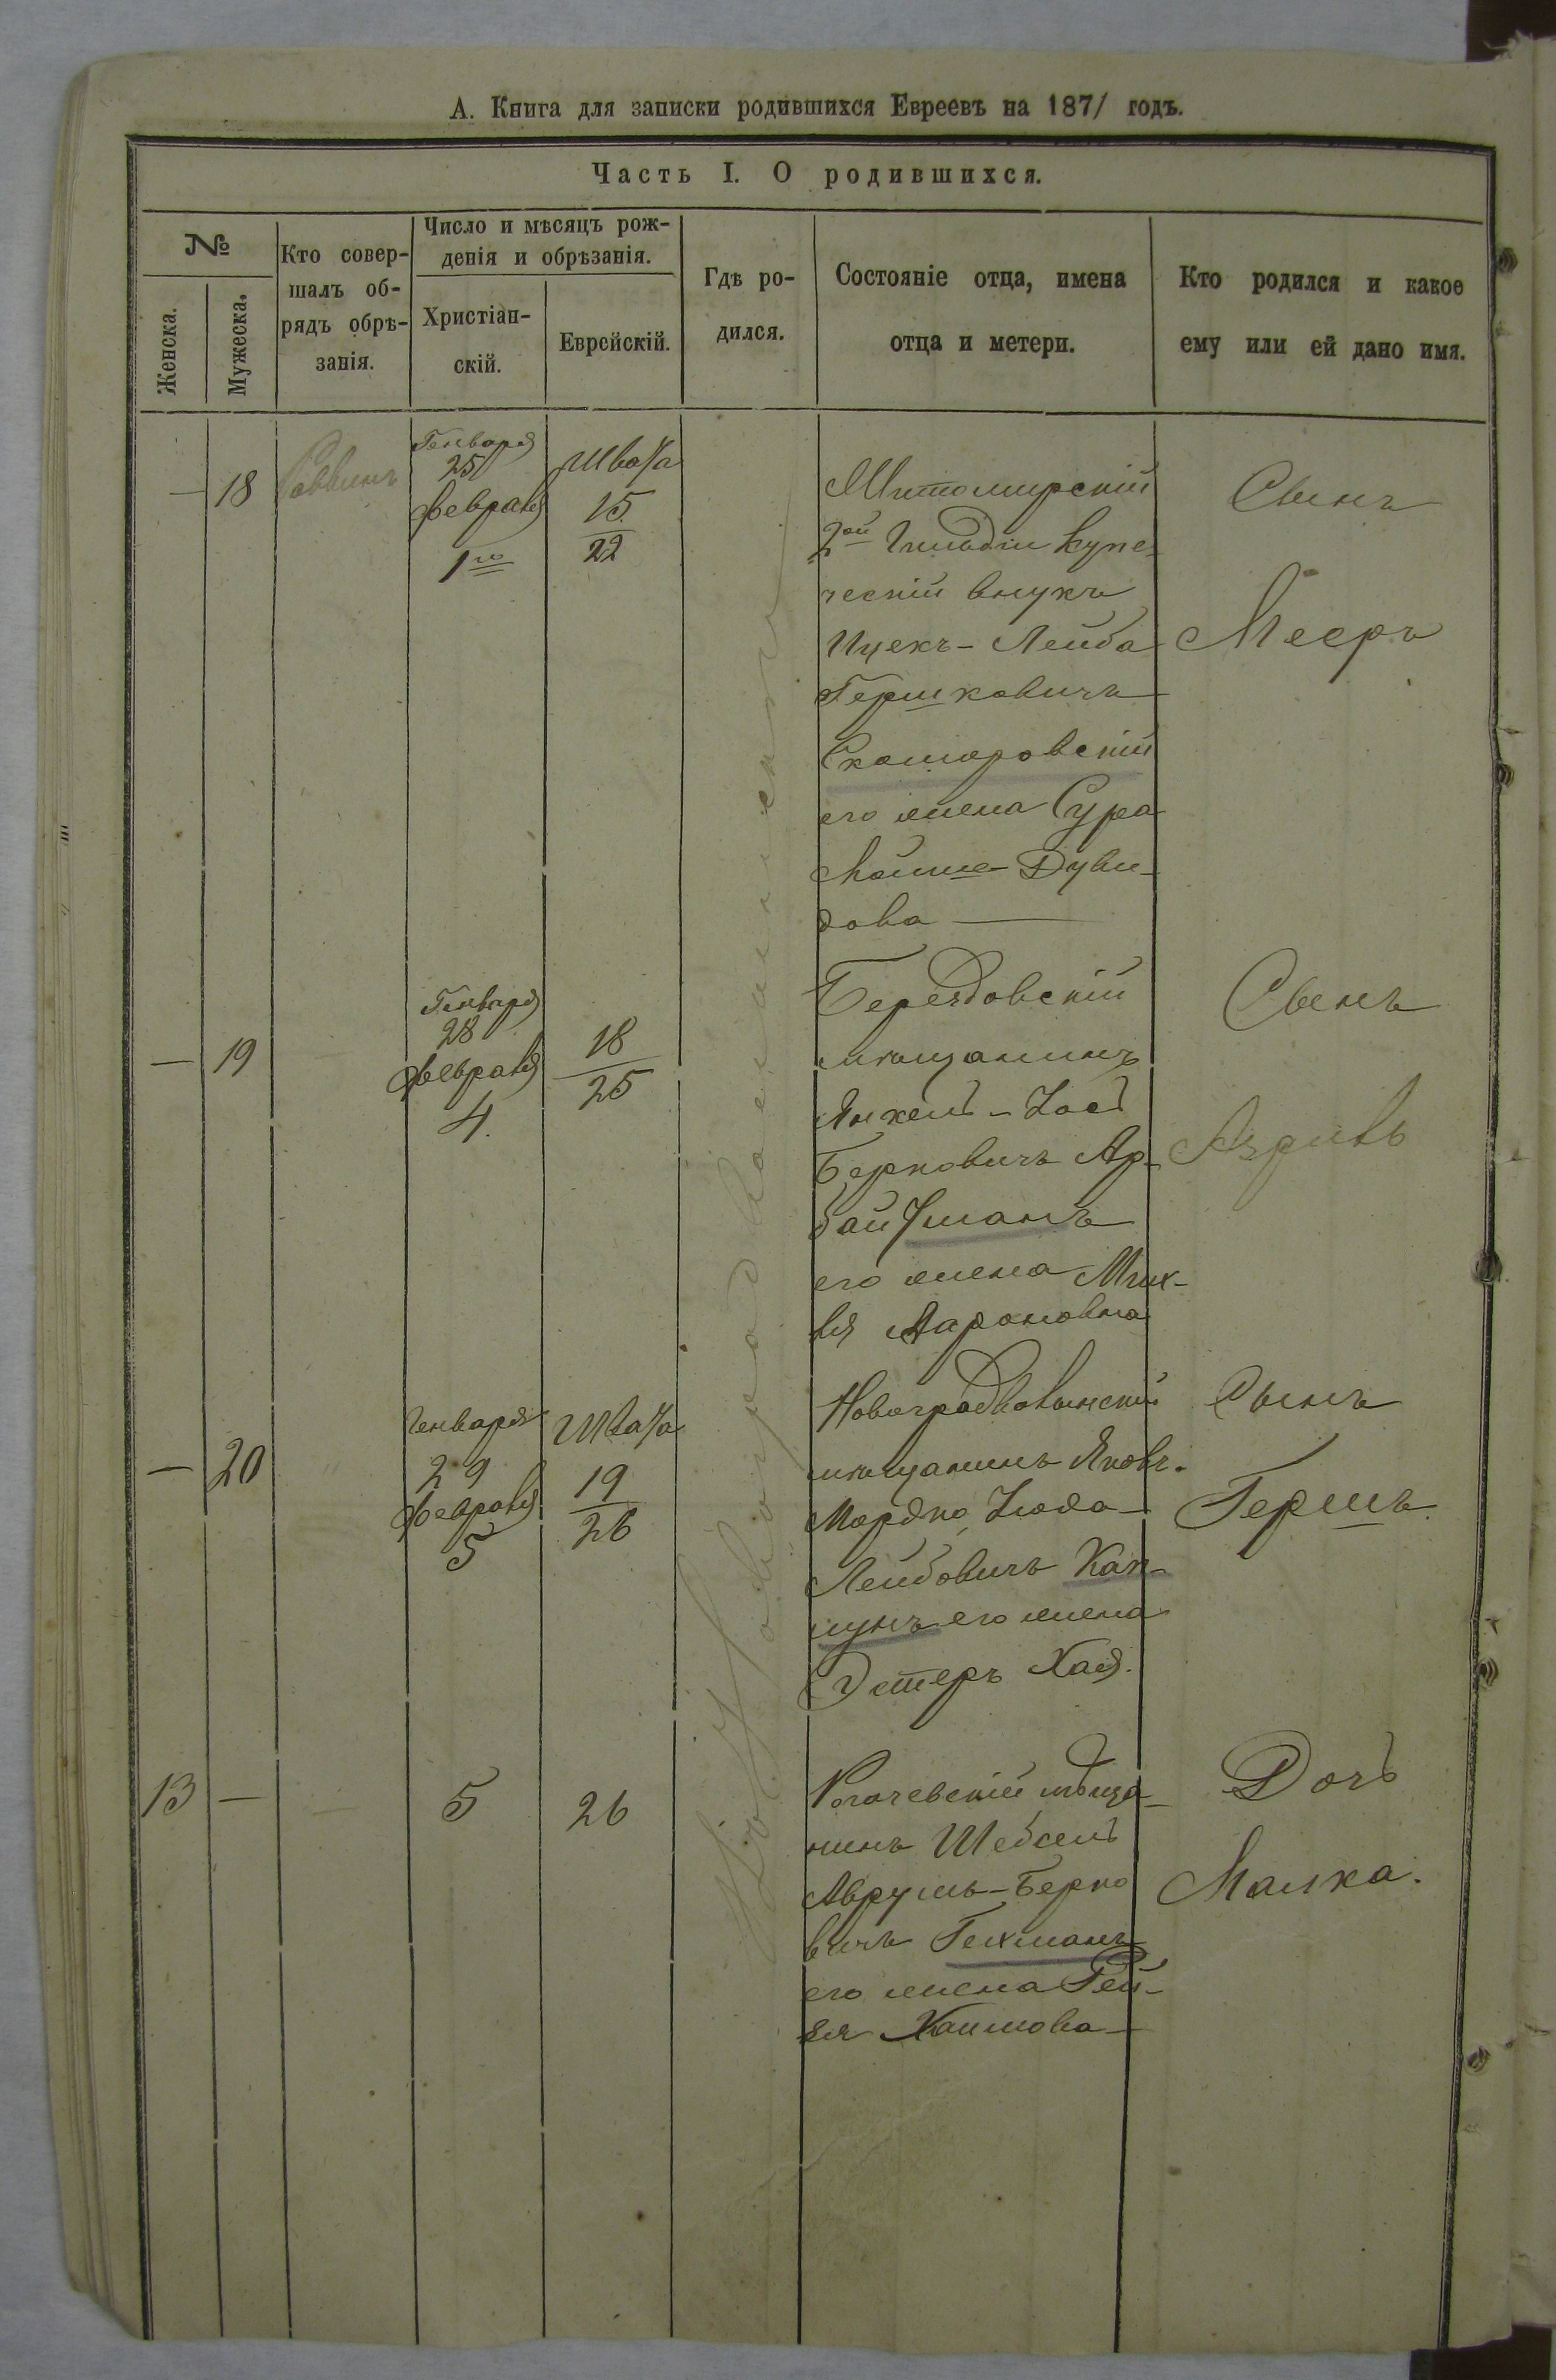 А. Книга для записки родившихся Евреевъ на 1871 годъ.
Часть I. О родившихся.
№
Женска.
Мужеска.
Кто совер-
шалъ об-
рядъ обрѣ-
занія.
Число и мѣсяцъ рож-
денія и обрѣзанія.
Христіан-
скій.
Еврейскій.
Гдѣ ро-
дился.
Состояніе отца, имена
отца и метери.
Кто родился и какое
ему или ей дано имя.
— 18
Раввинъ
Генваря
25
февраля
1го
Швата
15
22
Житомирскій
2ой Гильдіи купе-
ческій внукъ
Ицекъ-Лейба
Гершковичъ
его жена Сура
Мойше-Дуви-
дова —
Сынъ
Мееръ
— 19
Генваря
28
февраля
4.
18
25
Берездовскій
мѣщанинъ
Янкель-Іось
Берковичъ Ар-
байтманъ
его жена Мих-
ля Ароновна
Сынъ
Азриль
— 20
Генваря
29
февраля
5
Швата
19
26
Новоградволынскій
мѣщанинъ Яковъ-
Мордко Іюда-
Лейбовичъ Кап-
лунъ его жена
Эстеръ Хая.
Сынъ
Гершъ.
13 —
5
26
Рогачевскій мѣща-
нинъ Шебсель
Аврумъ-Берко
вичъ Гехманъ
его жена Рей-
зя Хаимова —
Дочь
Малка.
Въ Новоградволынскѣ